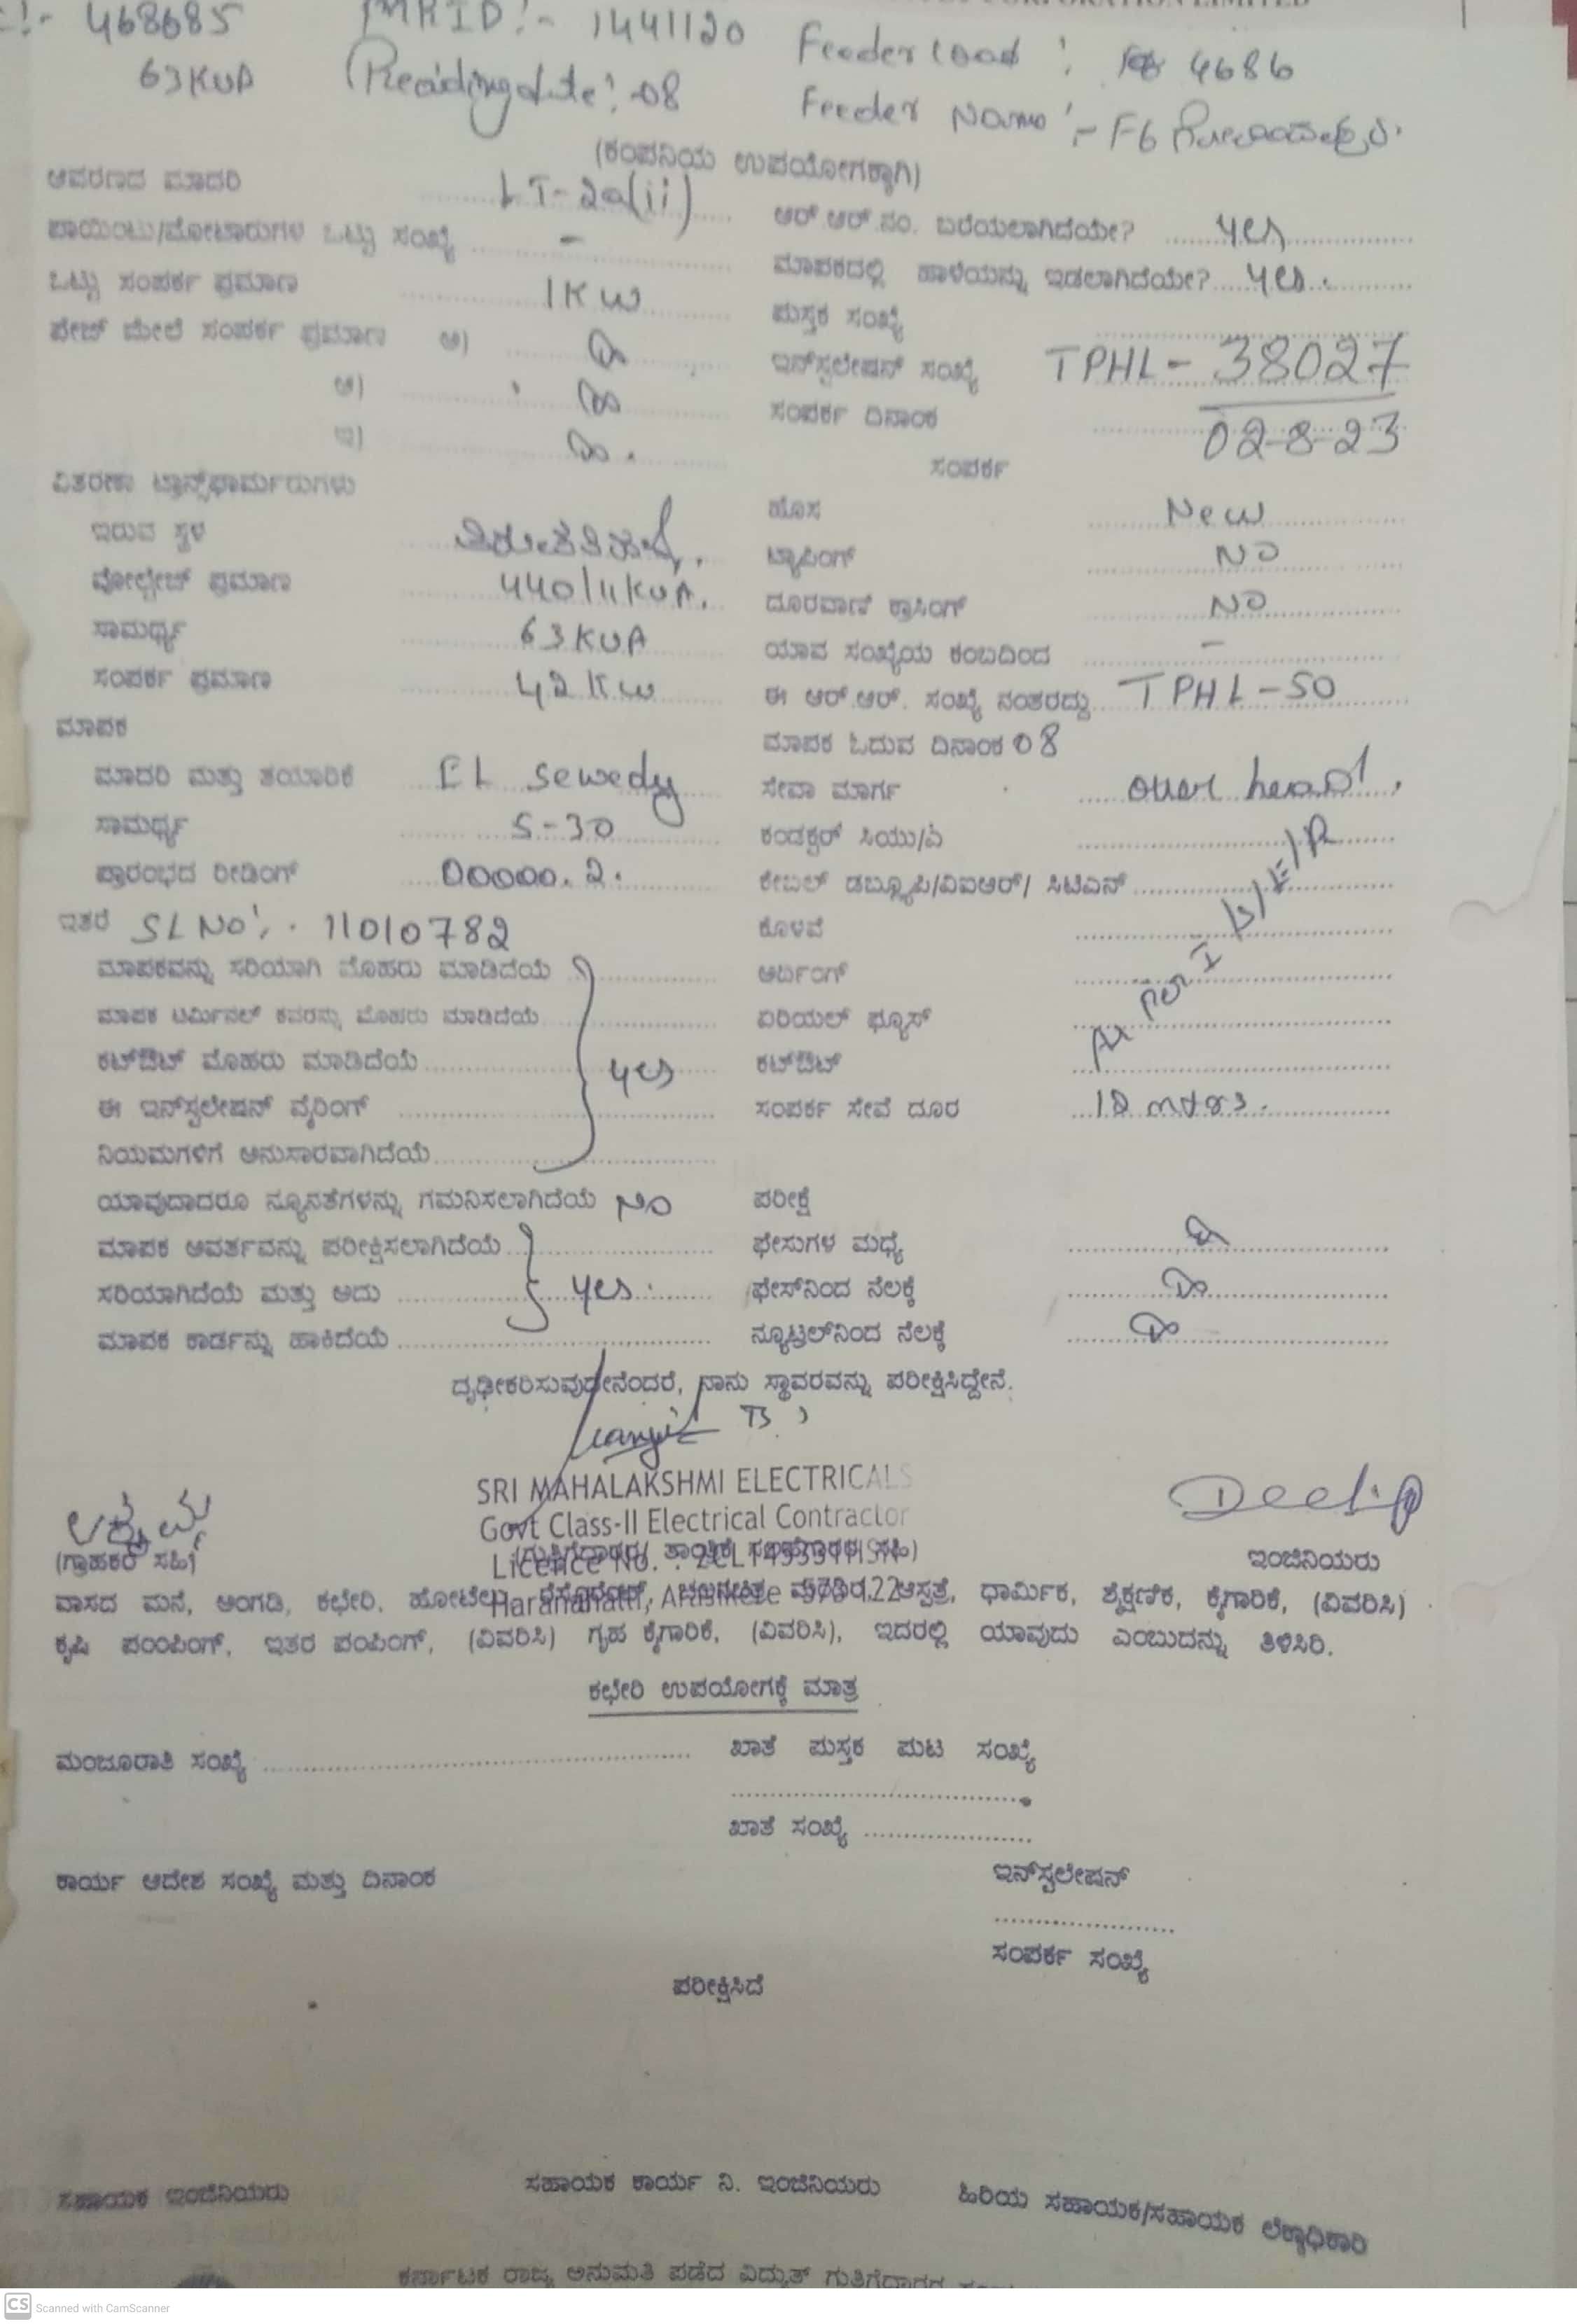 468685 MRID:- 1441120 Feeder Load : 4686
63KVA Readingdate:-08 Feeder Name :- F6
(ಕಂಪನಿಯ ಉಪಯೋಗಕ್ಕಾಗಿ)
ಆವರಣದ ಮಾದರಿ LT-2a(ii)
ಪಾಯಿಂಟು/ಮೋಟಾರುಗಳ ಒಟ್ಟು ಸಂಖ್ಯೆ -
ಒಟ್ಟು ಸಂಪರ್ಕ ಪ್ರಮಾಣ 1KW
ಪೇಜ್ ಮೇಲೆ ಸಂಪರ್ಕ ಪ್ರಮಾಣ ಅ)
ಆ)
ಇ)
ವಿತರಣಾ ಟ್ರಾನ್ಸ್‌ಫಾರ್ಮರುಗಳು
ಇರುವ ಸ್ಥಳ
ವೋಲ್ಟೇಜ್ ಪ್ರಮಾಣ 440/11KVA.
ಸಾಮರ್ಥ್ಯ 63KVA
ಸಂಪರ್ಕ ಪ್ರಮಾಣ 42KW
ಮಾಪಕ
ಮಾದರಿ ಮತ್ತು ತಯಾರಿಕೆ EL Sewedy
ಸಾಮರ್ಥ್ಯ 5-30
ಪ್ರಾರಂಭದ ರೀಡಿಂಗ್ 00000.2.
ಇತರೆ SLNO:. 11010782
ಮಾಪಕವನ್ನು ಸರಿಯಾಗಿ ಮೊಹರು ಮಾಡಿದೆಯೆ
ಮಾಪಕ ಟರ್ಮಿನಲ್ ಕವರನ್ನು ಮೊಹರು ಮಾಡಿದೆಯೆ
ಕಟ್‌ಔಟ್ ಮೊಹರು ಮಾಡಿದೆಯೆ yes
ಈ ಇನ್‌ಸ್ಟಲೇಷನ್ ವೈರಿಂಗ್
ನಿಯಮಗಳಿಗೆ ಅನುಸಾರವಾಗಿದೆಯೆ
ಯಾವುದಾದರೂ ನ್ಯೂನತೆಗಳನ್ನು ಗಮನಿಸಲಾಗಿದೆಯೆ NO
ಮಾಪಕ ಆವರ್ತವನ್ನು ಪರೀಕ್ಷಿಸಲಾಗಿದೆಯೆ
ಸರಿಯಾಗಿದೆಯೆ ಮತ್ತು ಅದು yes.
ಮಾಪಕ ಕಾರ್ಡನ್ನು ಹಾಕಿದೆಯೆ
ಆರ್.ಆರ್.ನಂ. ಬರೆಯಲಾಗಿದೆಯೇ? yes
ಮಾಪಕದಲ್ಲಿ ಹಾಳೆಯನ್ನು ಇಡಲಾಗಿದೆಯೇ? yes.
ಪುಸ್ತಕ ಸಂಖ್ಯೆ
ಇನ್‌ಸ್ಟಲೇಷನ್ ಸಂಖ್ಯೆ TPHL-38027
ಸಂಪರ್ಕ ದಿನಾಂಕ 02-8-23
ಸಂಪರ್ಕ
ಹೊಸ New
ಟ್ಯಾಪಿಂಗ್ NO
ದೂರವಾಣಿ ಕ್ರಾಸಿಂಗ್ NO
ಯಾವ ಸಂಖ್ಯೆಯ ಕಂಬದಿಂದ -
ಈ ಆರ್.ಆರ್. ಸಂಖ್ಯೆ ನಂತರದ್ದು TPHL-50
ಮಾಪಕ ಓದುವ ದಿನಾಂಕ 08
ಸೇವಾ ಮಾರ್ಗ over head.
ಕಂಡಕ್ಟರ್ ಸಿಯು/ಎ
ಕೇಬಲ್ ಡಬ್ಲ್ಯೂಪಿ/ವಿಐಆರ್/ ಸಿಟಿಎಸ್
ಕೊಳವೆ
ಅರ್ದಿಂಗ್
ಏರಿಯಲ್ ಫ್ಯೂಸ್
ಕಟ್‌ಔಟ್
ಸಂಪರ್ಕ ಸೇವೆ ದೂರ
ಪರೀಕ್ಷೆ
ಫೇಸುಗಳ ಮಧ್ಯೆ
ಫೇಸ್‌ನಿಂದ ನೆಲಕ್ಕೆ
ನ್ಯೂಟ್ರಲ್‌ನಿಂದ ನೆಲಕ್ಕೆ
ದೃಢೀಕರಿಸುವುದೇನೆಂದರೆ, ನಾನು ಸ್ಥಾವರವನ್ನು ಪರೀಕ್ಷಿಸಿದ್ದೇನೆ.
SRI MAHALAKSHMI ELECTRICALS
Govt Class-II Electrical Contractor
Licence No. :
ಲಕ್ಷ್ಮಮ್ಮ
(ಗ್ರಾಹಕರ ಸಹಿ) ಇಂಜಿನಿಯರು
ವಾಸದ ಮನೆ, ಅಂಗಡಿ, ಕಛೇರಿ, ಹೋಟೆಲು, ಆಸ್ಪತ್ರೆ, ಧಾರ್ಮಿಕ, ಶೈಕ್ಷಣಿಕ, ಕೈಗಾರಿಕೆ, (ವಿವರಿಸಿ)
ಕೃಷಿ ಪಂಂಪಿಂಗ್, ಇತರ ಪಂಪಿಂಗ್, (ವಿವರಿಸಿ) ಗೃಹ ಕೈಗಾರಿಕೆ, (ವಿವರಿಸಿ), ಇದರಲ್ಲಿ ಯಾವುದು ಎಂಬುದನ್ನು ತಿಳಿಸಿರಿ.
ಕಛೇರಿ ಉಪಯೋಗಕ್ಕೆ ಮಾತ್ರ
ಮಂಜೂರಾತಿ ಸಂಖ್ಯೆ ಖಾತೆ ಪುಸ್ತಕ ಪುಟ ಸಂಖ್ಯೆ
ಖಾತೆ ಸಂಖ್ಯೆ
ಕಾರ್ಯ ಆದೇಶ ಸಂಖ್ಯೆ ಮತ್ತು ದಿನಾಂಕ ಇನ್‌ಸ್ಟಲೇಷನ್
ಸಂಪರ್ಕ ಸಂಖ್ಯೆ
ಪರೀಕ್ಷಿಸಿದೆ
ಸಹಾಯಕ ಇಂಜಿನಿಯರು ಸಹಾಯಕ ಕಾರ್ಯ ನಿ. ಇಂಜಿನಿಯರು ಹಿರಿಯ ಸಹಾಯಕ/ಸಹಾಯಕ ಲೆಕ್ಕಾಧಿಕಾರಿ
ಕರ್ನಾಟಕ ರಾಜ್ಯ ಅನುಮತಿ ಪಡೆದ ವಿದ್ಯುತ್ ಗುತ್ತಿಗೆದಾರರ
CS Scanned with CamScanner